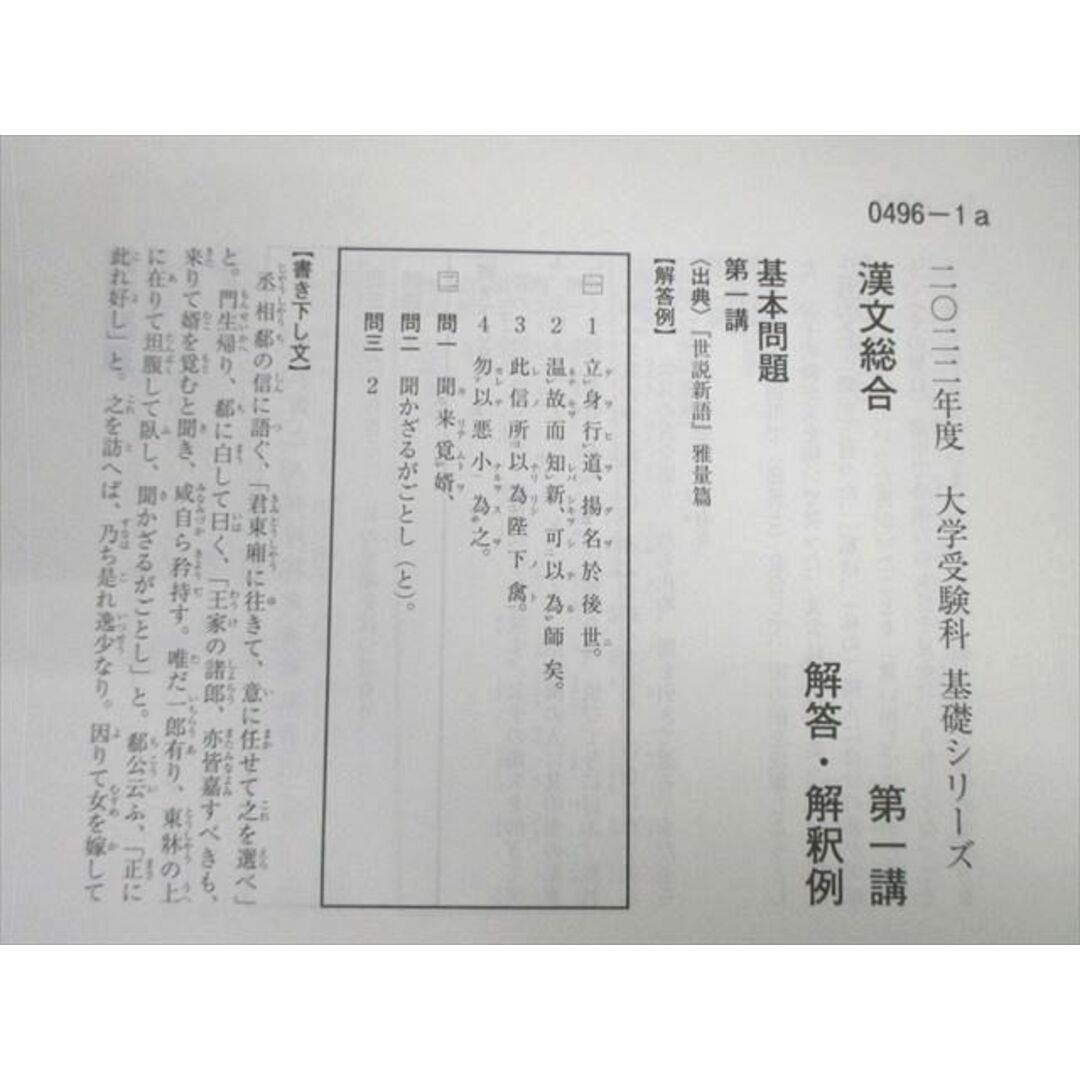 0496－1a
二〇二二年度　大学受験科　基礎シリーズ
漢文総合　第一講
解答・解釈例
基本問題
第一講
〈出典〉『世説新語』雅量篇
【解答例】
一
1　立身行道、揚名於後世。
2　温故而知新、可以為師矣。
3　此信所以為陛下禽。
4　勿以悪小為之。
二
問一　聞来覓婿、
問二　聞かざるがごとし（と）。
問三　2
【書き下し文】
丞相郗の信に語ぐ、「君東廂に往きて、意に任せて之を選べ」
と。門生帰り、郗に白して曰く、「王家の諸郎、亦皆嘉すべきも、
来りて婿を覓むと聞き、咸自ら矜持す。唯だ一郎有り、東牀の上
に在りて坦腹して臥し、聞かざるがごとし」と。郗公云ふ、「正に
此れ好し」と。之を訪へば、乃ち是れ逸少なり。因りて女を嫁して